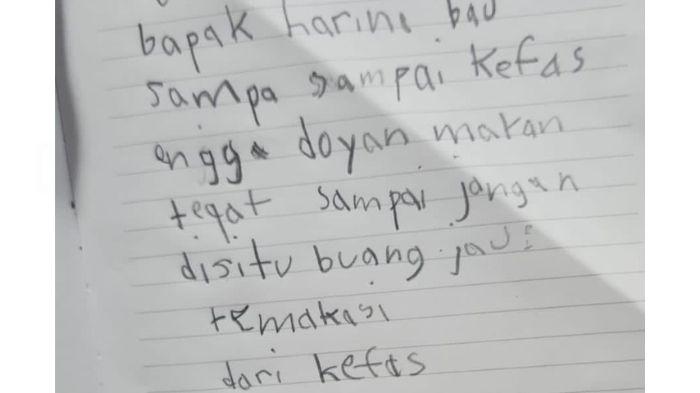 bapak harini bau
sampa sampai kefas
engga doyan makan
tegat sampai jangan
disitu buang jau
temakasi
dari kefas